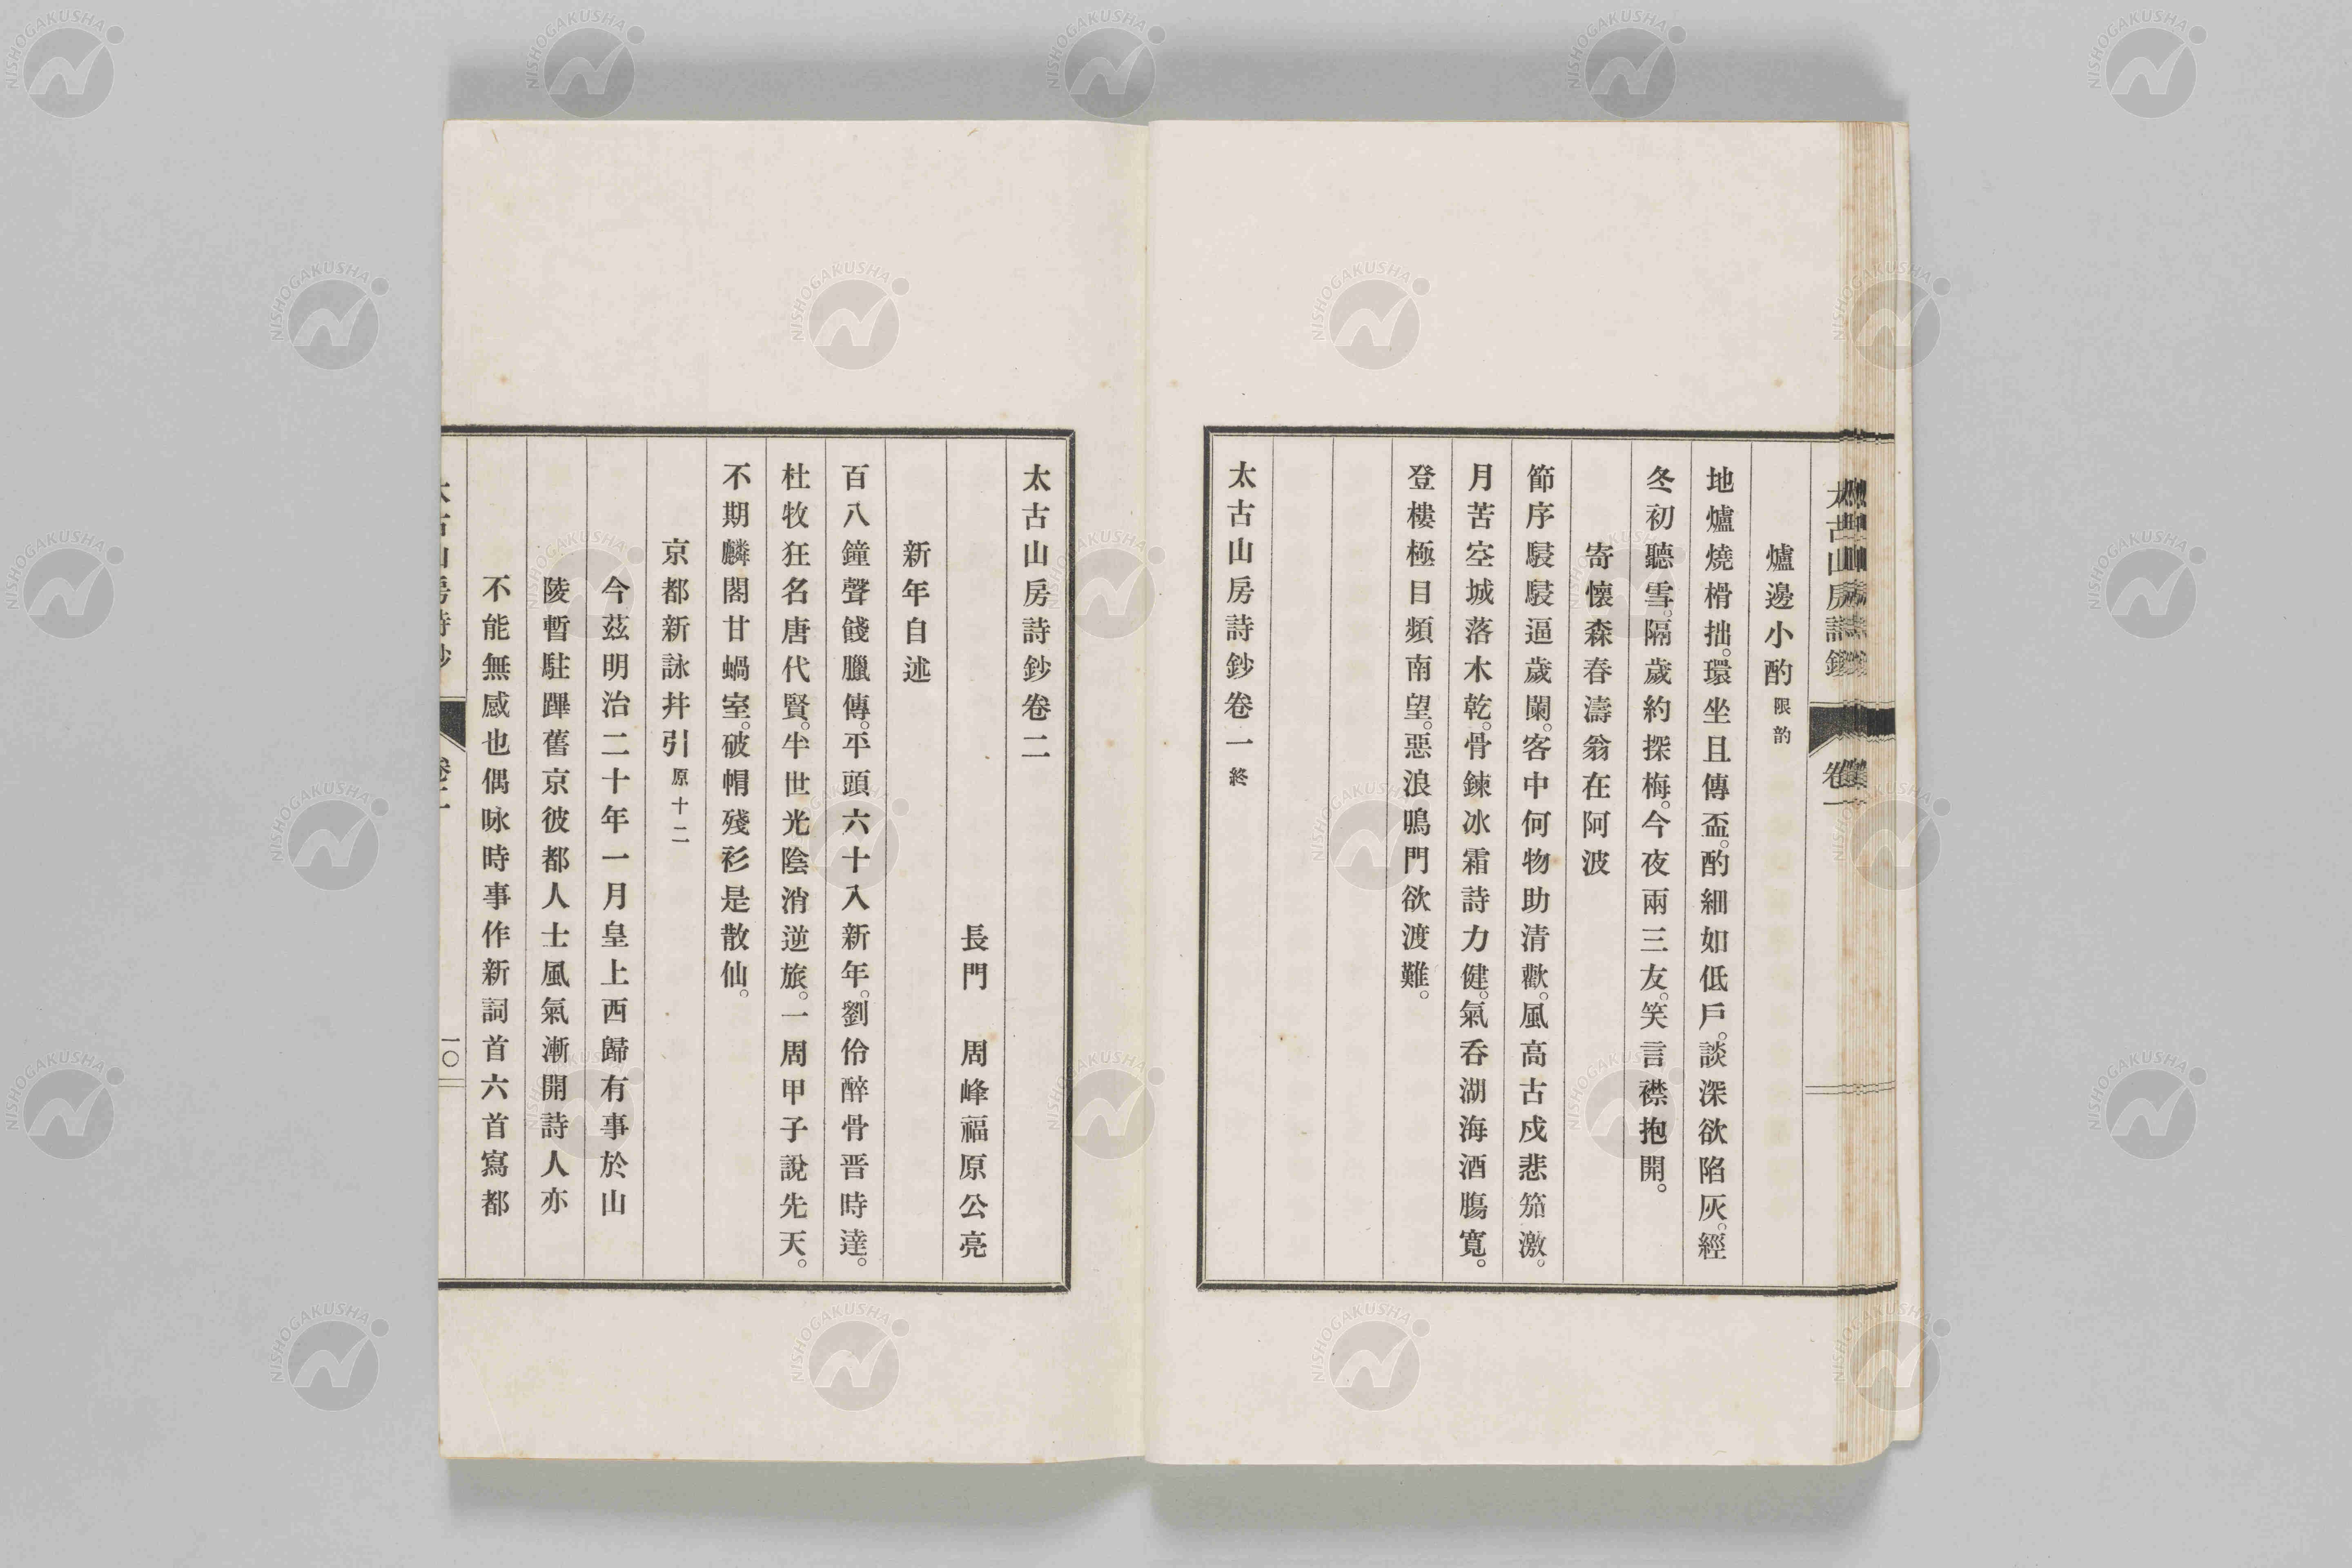 太古山房詩鈔
卷一
爐邊小酌 限韵
地爐燒榾拙。環坐且傳盃。酌細如低戶。談深欲陷灰。經
冬初聽雪。隔歲約探梅。今夜兩三友。笑言襟抱開。
寄懷森春濤翁在阿波
節序駸駸逼歲闌。客中何物助清歡。風高古戍悲笳激。
月苦空城落木乾。骨鍊冰霜詩力健。氣吞湖海酒膓寬。
登樓極目頻南望。惡浪鳴門欲渡難。
太古山房詩鈔卷一 終
太古山房詩鈔卷二
長門 周峰福原公亮
新年自述
百八鐘聲餞臘傳。平頭六十入新年。劉伶醉骨晋時達。
杜牧狂名唐代賢。半世光陰消逆旅。一周甲子說先天。
不期麟閣甘蝸室。破帽殘衫是散仙。
京都新詠幷引 原十二
今茲明治二十年一月皇上西歸有事於山
陵暫駐蹕舊京彼都人士風氣漸開詩人亦
不能無感也偶咏時事作新詞首六首寫都
太古山房詩鈔
卷二
一〇
NISHOGAKUSHA